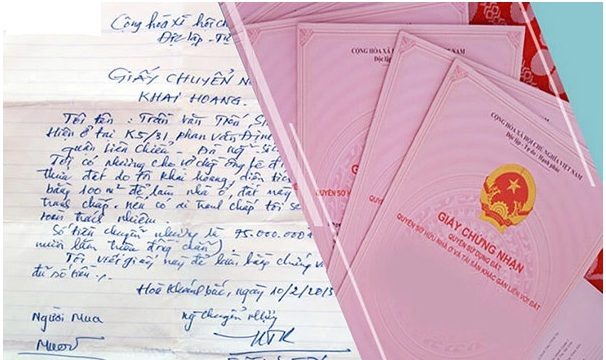 Cộng hòa xã hội ch
Độc lập - Tự
GIẤY CHUYỂN N
KHAI HOANG.
Tôi tên : Trần Văn Trổ, S
Hiện ở tại K5/31 Phan Văn Định
quận Liên Chiểu, Đà Nẵng
Tôi có nhường cho vợ
thửa đất do tôi khai hoang, diện tích
bằng 100 m² để làm nhà ở, đất này
tranh chấp, nếu có ai tranh chấp tôi
toàn trách nhiệm.
Số tiền chuyển nhường là 75.000.000
mươi lăm triệu đồng chẵn)
Tôi viết giấy này để làm bằng chứng
đủ số tiền
Hòa Khánh Bắc, ngày 10/2/2013
Người mua
chuyển nhượng
CỘNG HÒA XÃ HỘI CHỦ NGHĨA VIỆT NAM
Độc lập - Tự do - Hạnh phúc
CỘNG HÒA XÃ HỘI CHỦ NGHĨA VIỆT NAM
Độc lập - Tự do - Hạnh phúc
GIẤY CHỨNG NHẬN
QUYỀN SỬ DỤNG ĐẤT
QUYỀN SỞ HỮU NHÀ Ở VÀ TÀI SẢN KHÁC GẮN LIỀN VỚI ĐẤT